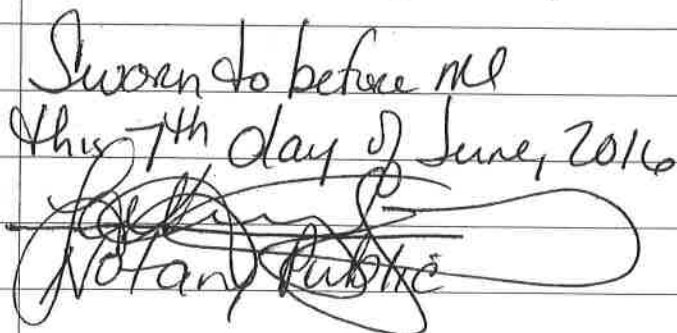 Sworn to before me
this 7th day of June, 2016
Notary Public